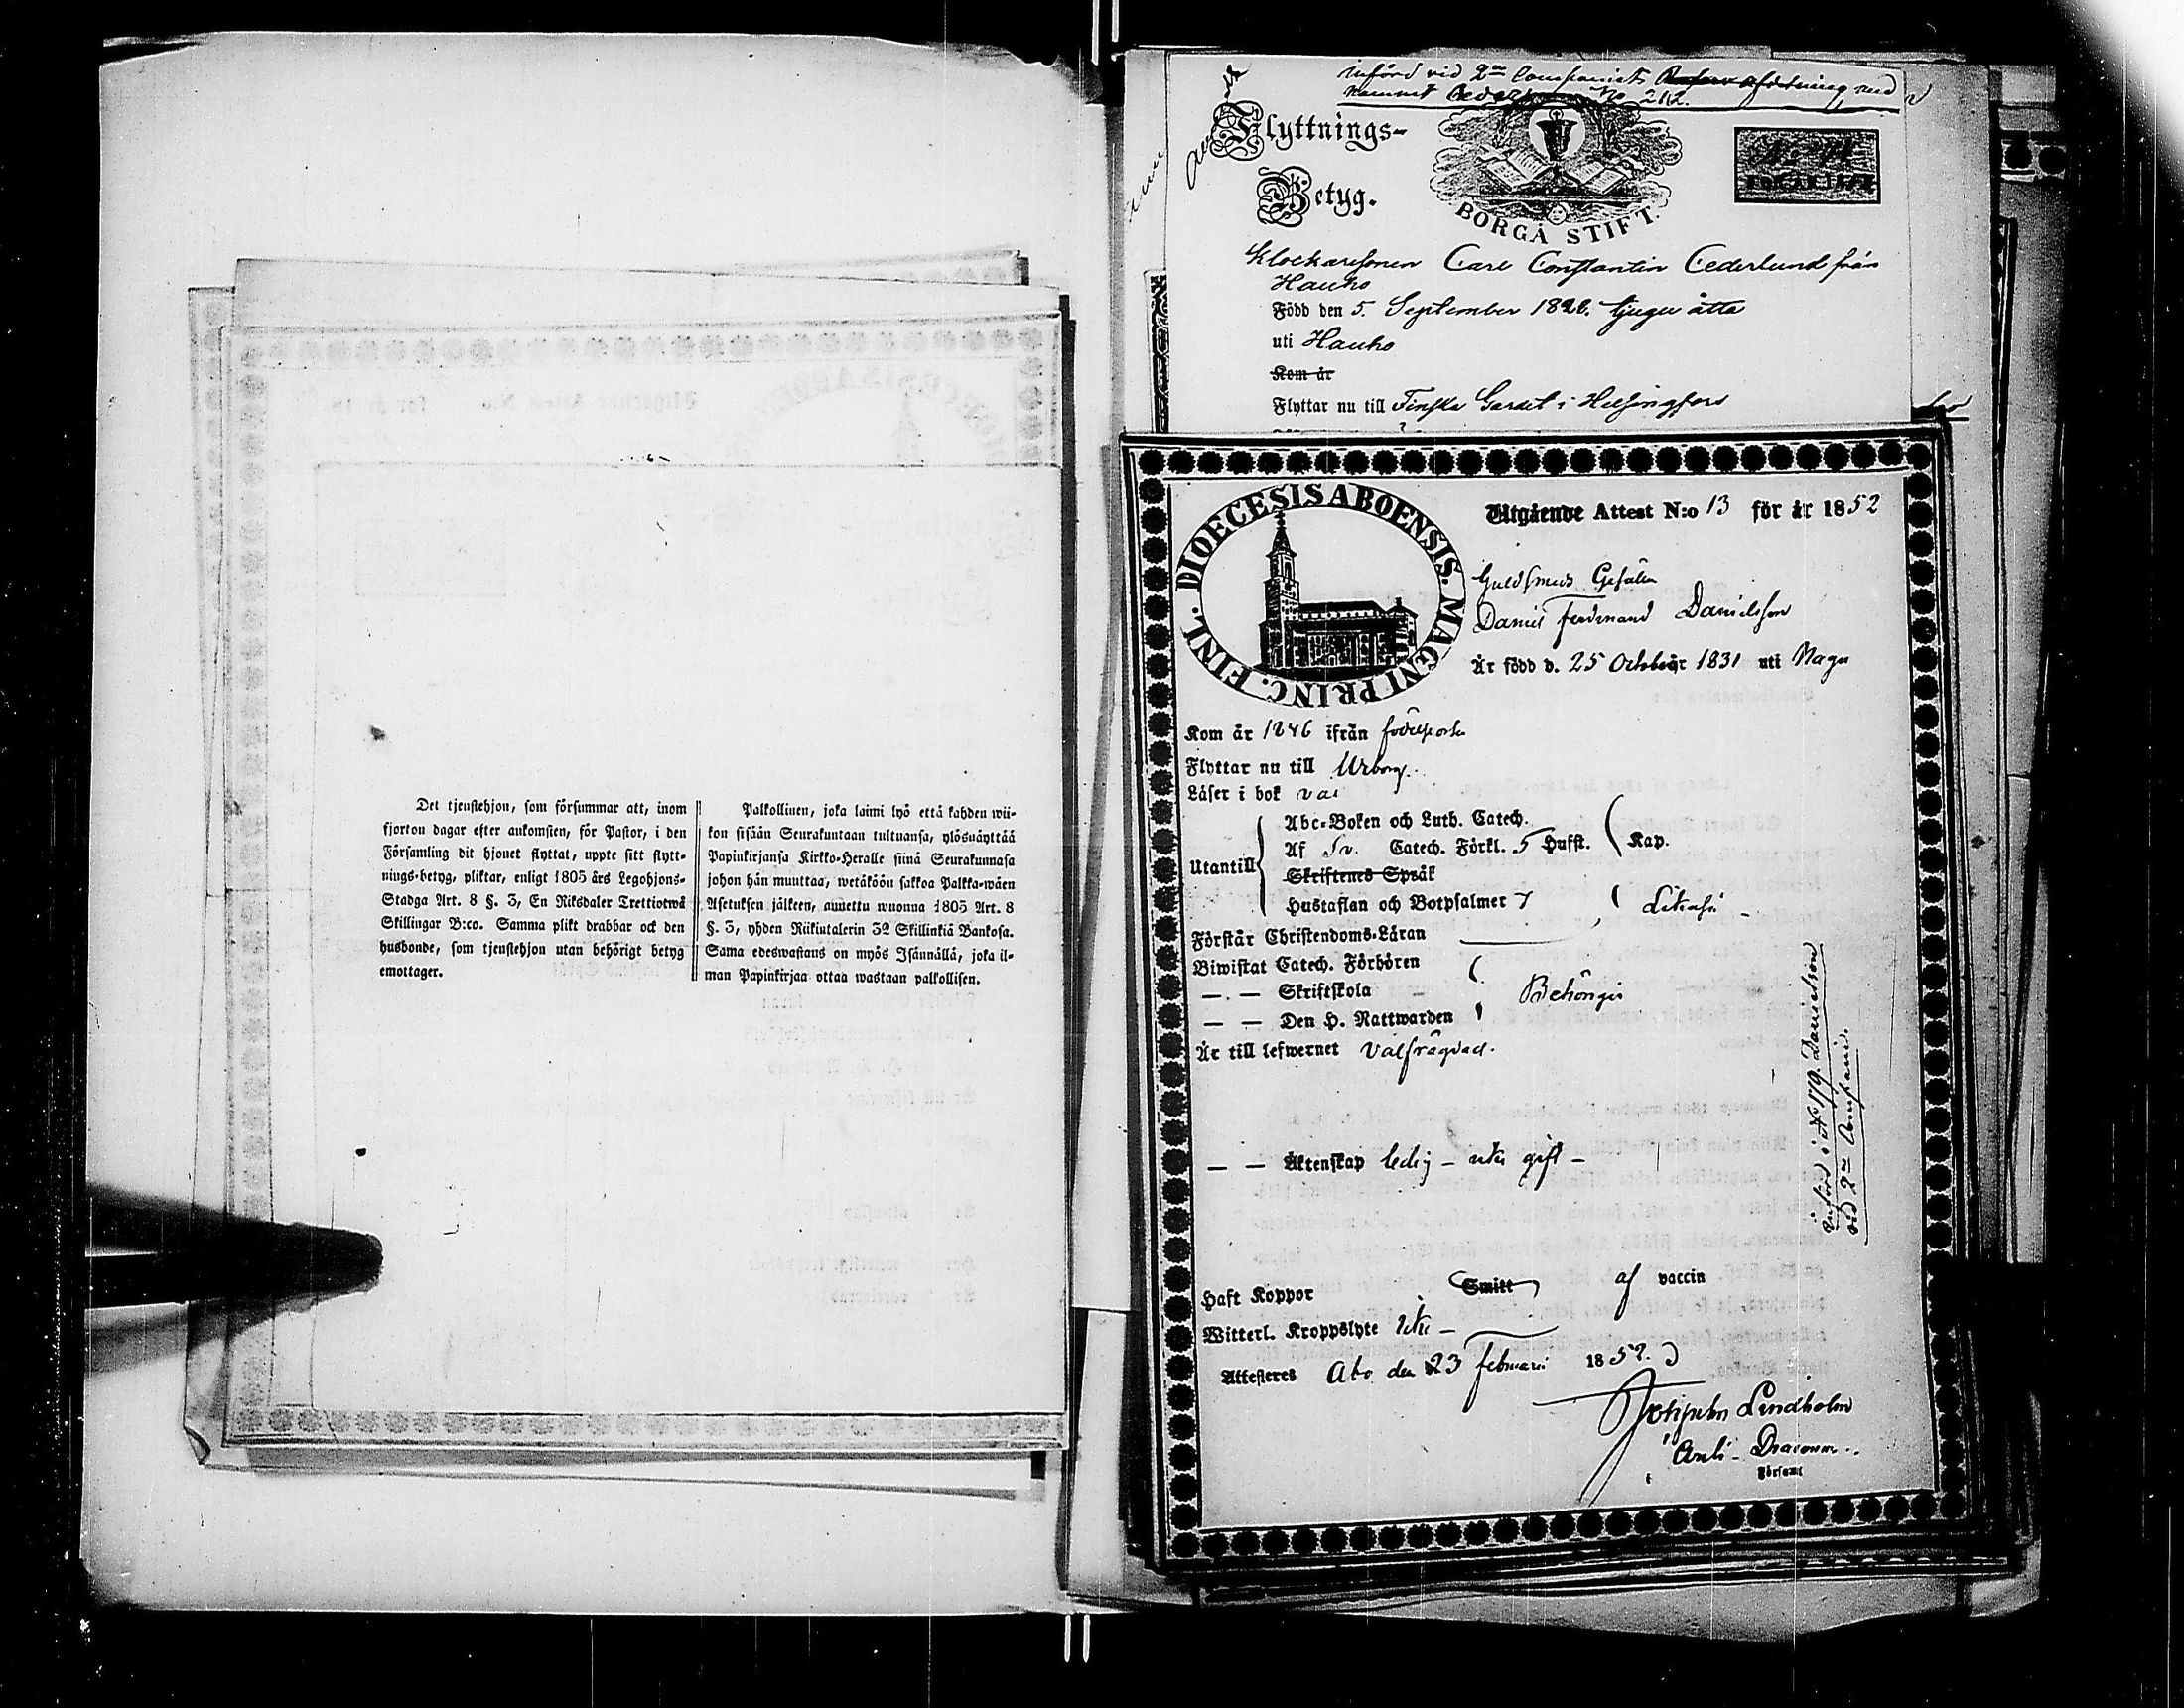 Det tjenstehjon, som försummar att, inom
fjorton dagar efter ankomsten, för Pastor, i den
Församling dit hjonet flyttat, uppte sitt flytt-
nings-betyg, pliktar, enligt 1805 års Legohjons-
Stadga Art. 8 §. 3, En Riksdaler Trettiotwå
Skillingar B:co. Samma plikt drabbar ock den
husbonde, som tjenstehjon utan behörigt betyg
emottager.
Palkollinen, joka laimi lyö että kahden wii-
kon sisään Seurakuntaan tultuansa, ylösnäyttää
Papinkirjansa Kirkko-Herralle siinä Seurakunnasa
johon hän muuttaa, wetäköön sakkoa Palkka-wäen
Asetuksen jälkeen, annettu wuonna 1805 Art. 8
§. 3, yhden Riikintalerin 32 Skillinkiä Bankosa.
Sama edeswastaus on myös Isännällä, joka il-
man Papinkirjaa ottaa wastaan palkollisen.
införd vid 2:a Compagniet
nammet No 212.
Flyttnings-
Betyg.
BORGÅ STIFT.
Klockaresonen Carl Constantin Cederlund från
Hauho
Född den 5. September 1828. tjugu åtta
uti Hauho
Kom år
Flyttar nu till Finska Gardet i Helsingfors
DIOECESIS ABOENSIS. MAGNI PRINC. FINL.
Utgående Attest N:o 13 för år 1852
Guldsmeds Gesällen
Daniel Ferdinand Danielsson
Är född d. 25 October 1831 uti Nagu
Kom år 1846 ifrån
Flyttar nu till
Läser i bok väl
Utantill
Abc-Boken och Luth. Catech.
Af Sv. Catech. Förkl. 5 Hufst. Kap.
Skriftenes Språk
Hustaflan och Botpsalmer 7
Förstår Christendoms-Läran
Biwistat Catech. Förhören
— — Skriftskola
— — Den H. Nattwarden
Är till lefwernet välfrägdad.
— — Äktenskap ledig – gift –
Haft Koppor Smitt af vaccin
Witterl. Kroppslyte
Attesteres Abo den 23 Februari 1852.
Lindholm
Församl
införd i N:o 179. Danielson
vid 2:a Compani.